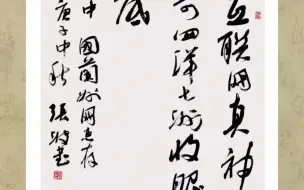 互联网真神
奇四洋七洲收眼
底
中国兰州网惠存
庚子中秋 张改琴书